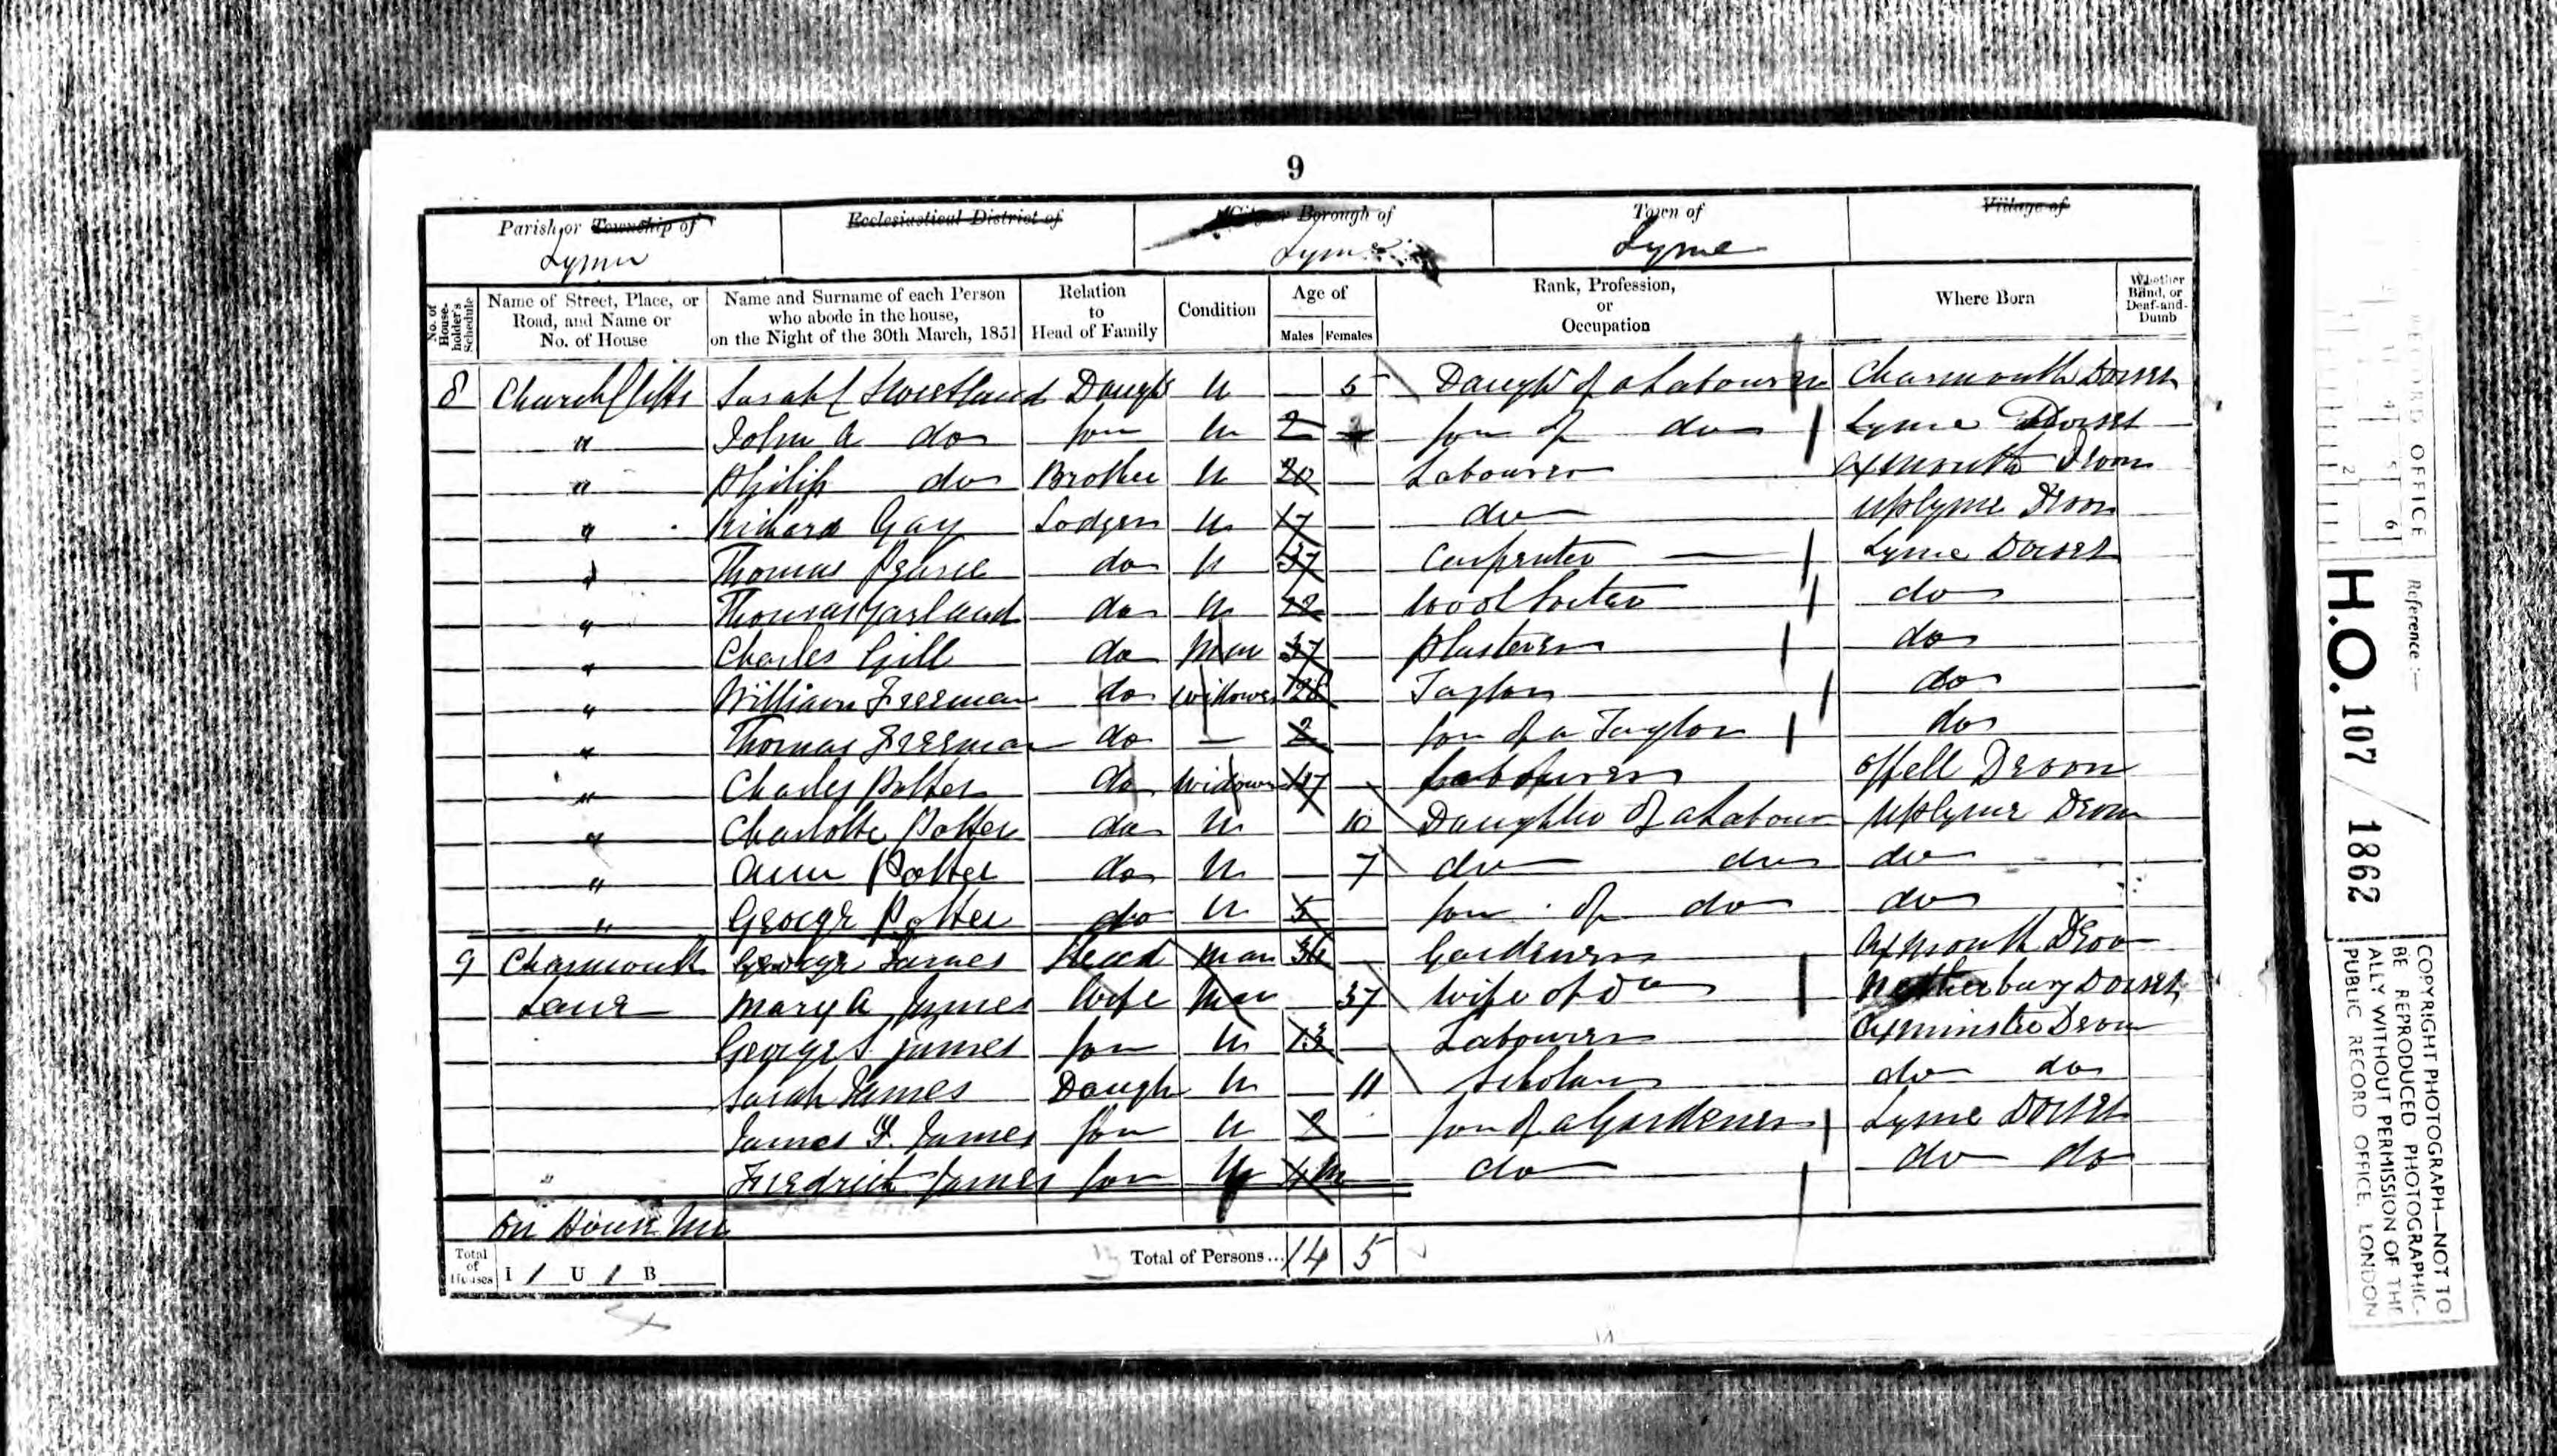 9
Parish or Township of Ecclesiastical District of City or Borough of Town of Village of
Lyme Lyme Lyme
No. of House-holder's Schedule
Name of Street, Place, or Road, and Name or No. of House
Name and Surname of each Person who abode in the house, on the Night of the 30th March, 1851
Relation to Head of Family
Condition
Age of
Males Females
Rank, Profession, or Occupation
Where Born
Whether Blind, or Deaf-and-Dumb
8 Church Cliffs Sarah Sweetland Daugh U — 5 Daughr of a Labourer Charmouth Dorset
" John A do Son U 2 Son of do Lyme Dorset
" Philip do Brother U 20 — Labourer Axmouth Devon
" Richard Gay Lodger U 17 — do Uplyme Devon
" Thomas Pearce do U 37 Carpenter Lyme Dorset
" Thomas Garland do U — Wool Sorter do
" Charles Gill do Mar 37 — Plasterer do
" William Freeman do Widower 28 Taylor do
" Thomas Freeman do — 2 — Son of a Taylor do
" Charles Potter do Widower — Labourer Offell Devon
" Charlotte Potter do U 10 Daughter of a Labour Uplyme Devon
" Ann Potter do U — 7 do do do
" George Potter do U 5 Son of do do
9 Charmouth George James Head Mar — Gardener Axmouth Devon
Lane Mary A James Wife Mar 37 Wife of Do Netherbury Dorset
George S. James Son U 13 — Labourer Axminster Devon
Sarah James Daugh U — 11 Scholar do do
James F. James Son U 2 — Son of a Gardener Lyme Dorset
" Fredrick James Son U 4 m do do do
On House Un
Total of Houses I 1 U 1 B Total of Persons... 14 5
RECORD OFFICE
Reference :—
H.O. 107 / 1862
COPYRIGHT PHOTOGRAPH—NOT TO
BE REPRODUCED PHOTOGRAPHIC-
ALLY WITHOUT PERMISSION OF THE
PUBLIC RECORD OFFICE, LONDON